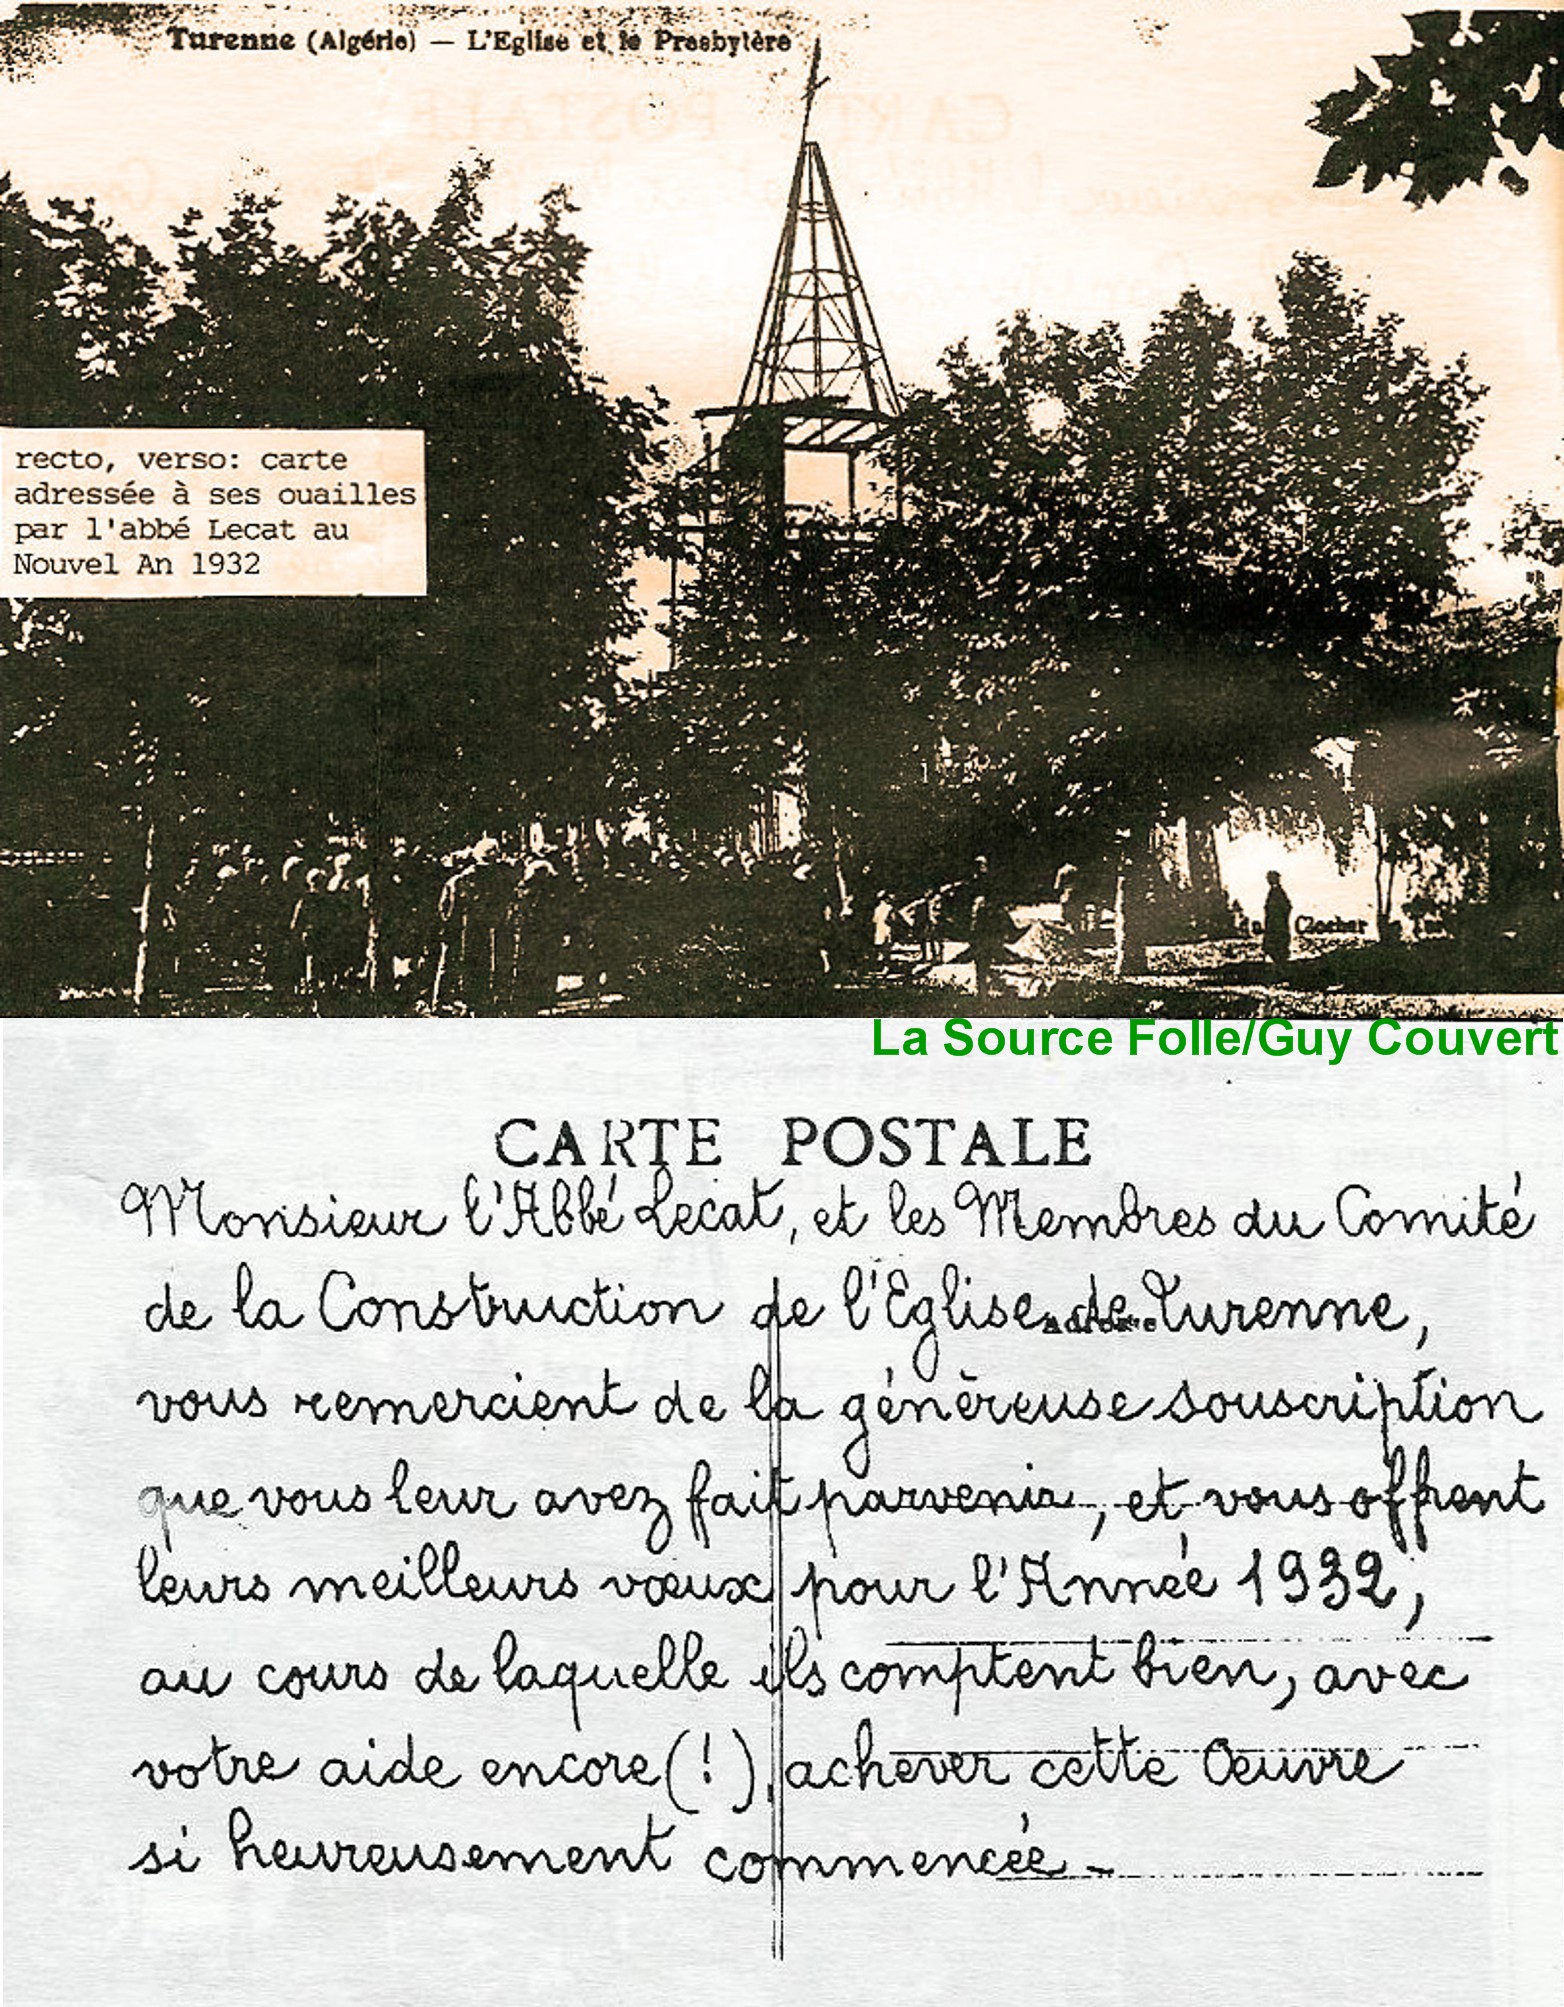 Turenne (Algérie) — L'Eglise et le Presbytère
recto, verso: carte
adressée à ses ouailles
par l'abbé Lecat au
Nouvel An 1932
Clocher
La Source Folle/Guy Couvert
CARTE POSTALE
Monsieur l'Abbé Lecat, et les Membres du Comité
de la Construction de l'Eglise de Turenne,
Adresse
vous remercient de la généreuse souscription
que vous leur avez fait parvenir, et vous offrent
leurs meilleurs vœux pour l'Année 1932,
au cours de laquelle ils comptent bien, avec
votre aide encore (!), achever cette Œuvre
si heureusement commencée -